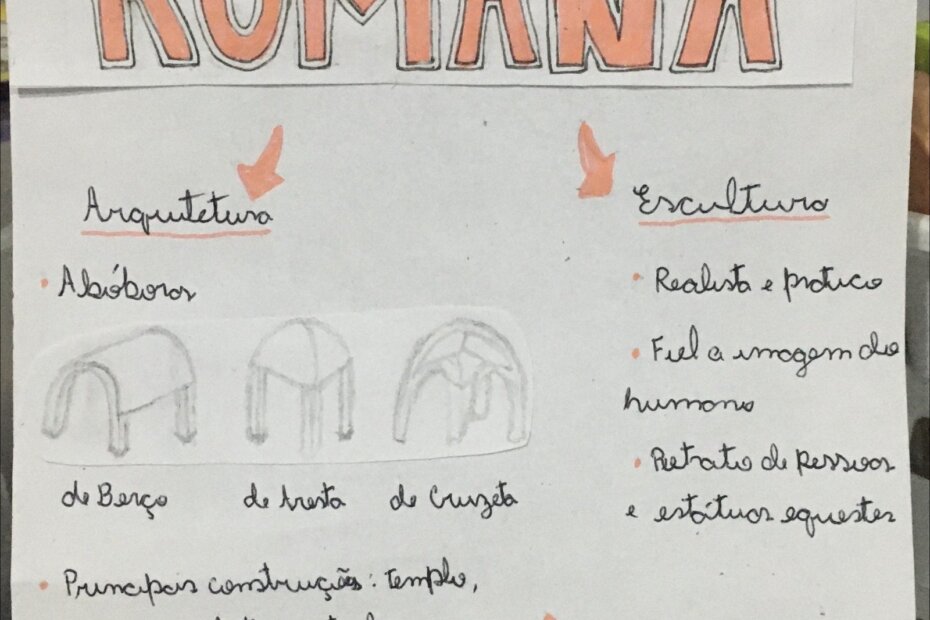 ROMANA
Arquitetura
• Abóboras
de Berço de Aresta de Cruzeta
• Principais construções: templo,
Escultura
• Realista e prático
• Fiel a imagem do
humano
• Retrato de pessoas
e estátuas equestes